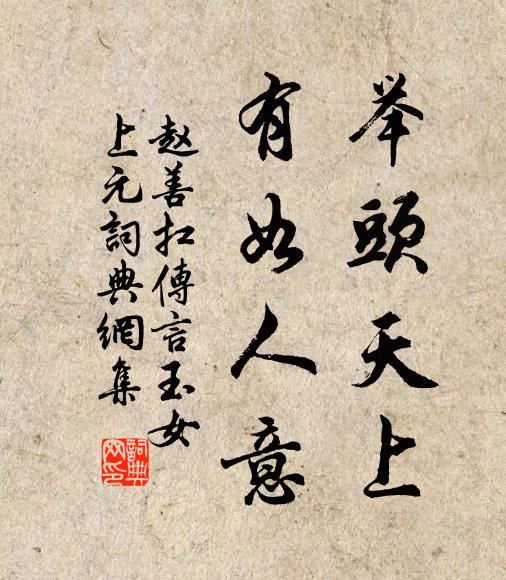 举頭天上
有如人意
赵善扛傳言玉女
上元詞典網集
詞典网印